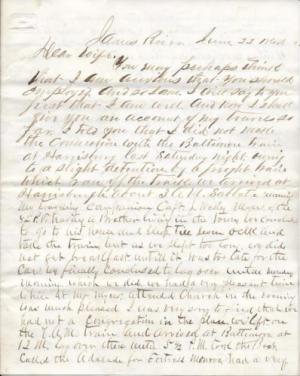 James River June 22
Dear Wife
You may perhaps think
that I am anxious that you should
and so I will say
first that I am well and now I shall
give you an account of my travels so
far I told you that I did not make
the Connection with the Baltimore train
at Harrisburg last Saturday night owing
to a slight detention by a freight train
which we arrived at
Harrisburg about 3 A.M. Sunday morning
my Company Companion Capt
a Brother living in the Town we concluded
to go to his house and sleep till seven Oclk and
take the train but as we slept too long and did
not get breakfast until it was too late for the
Cars we finally concluded to lay over until Monday
morning which we did we had a very pleasant time
while at Mr Myers attended Church in the evening
was much pleased I was very sorry to find that we
had not a Congregation in the place we left on
the A.M. Train and arrived at Baltimore at
12 M. lay over there until 5 P.M. took the Boat
Called the Adelaide for Fortress Monroe had a very